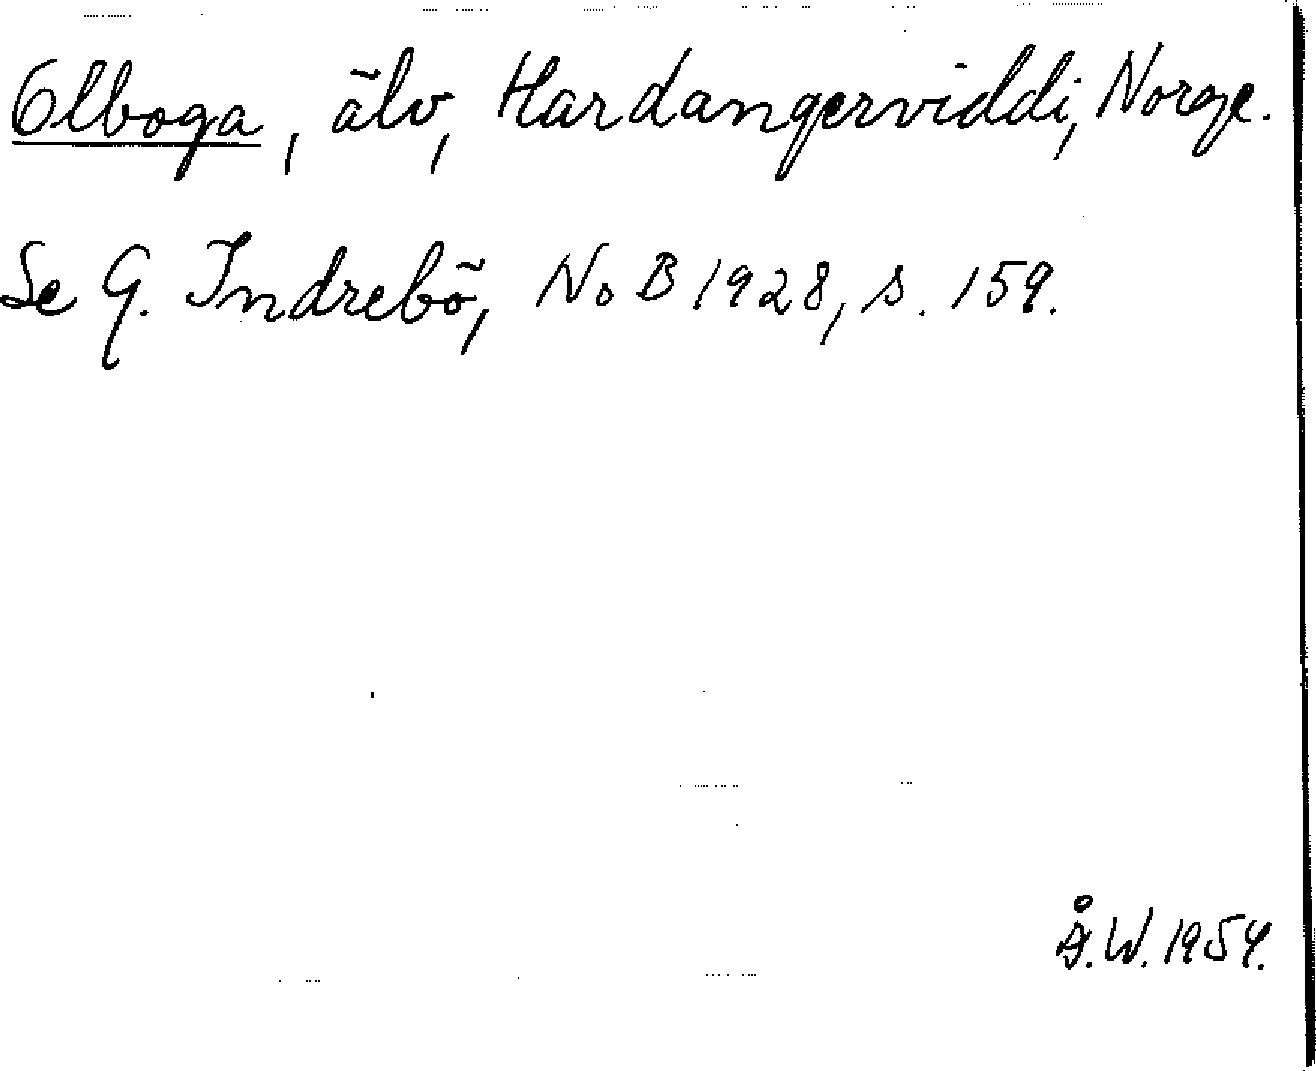 Olboga, älv, Hardangerviddi, Norge.
Se G. Indrebö, NoB 1928, s. 159.
Å.W. 1954.